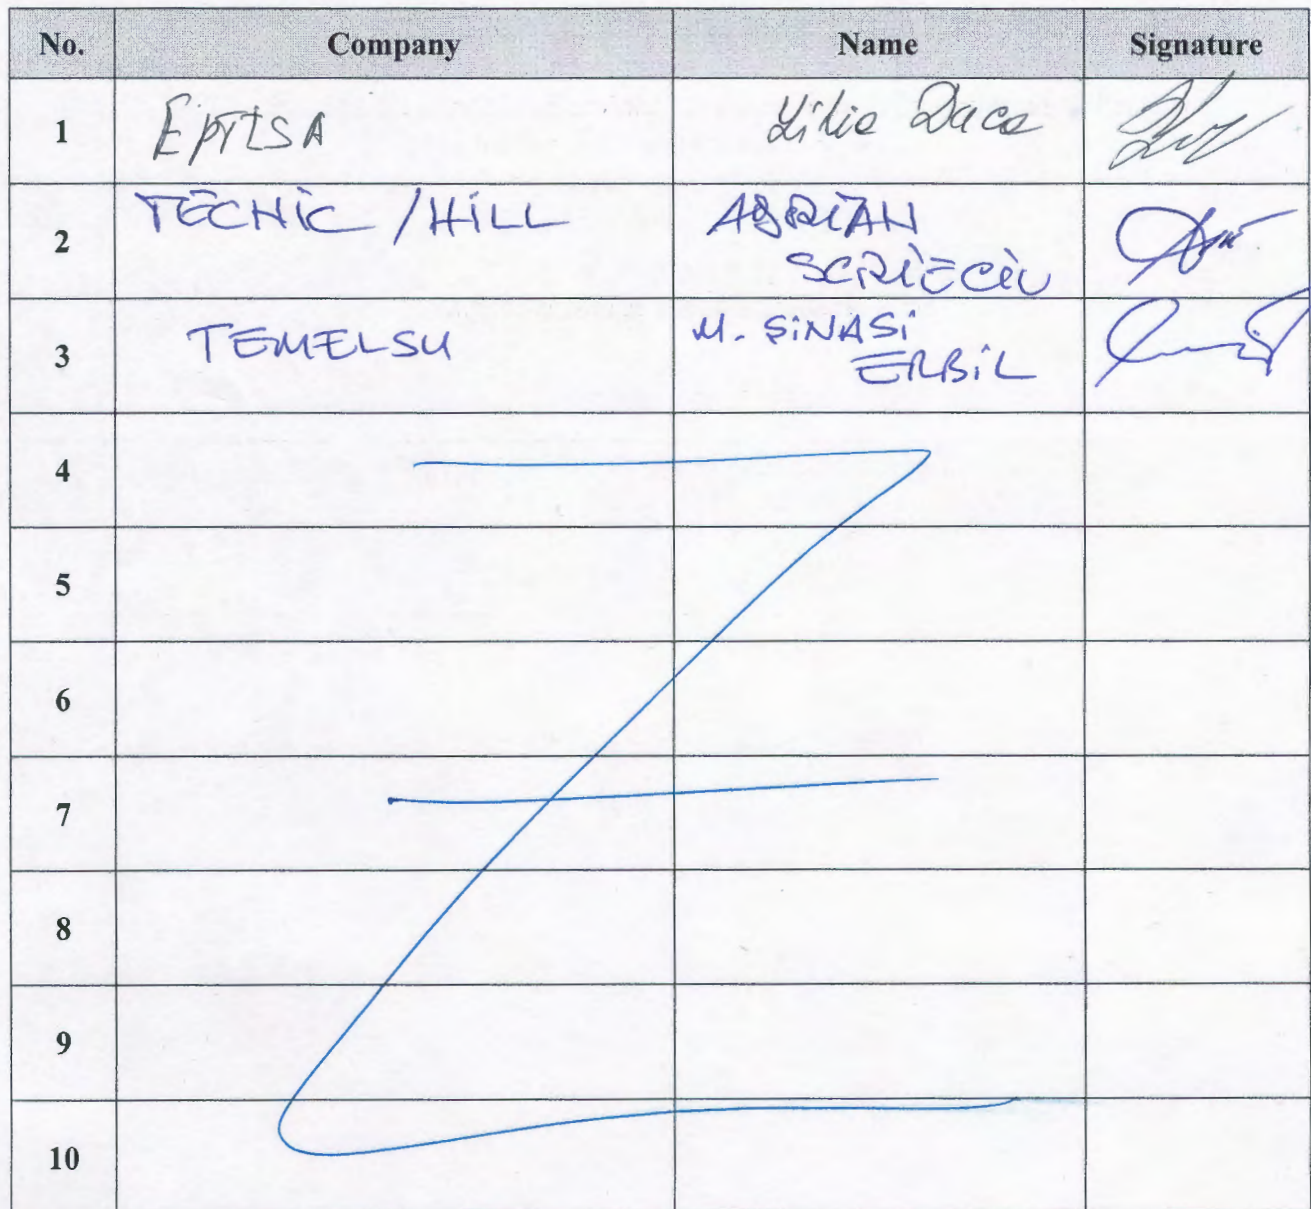 No. Company Name Signature
1 EPTISA Lilia Daca
2 TECNIC / HILL ADRIAN
SCRIECIU
3 TEMELSU M. ŞİNASİ
ERBİL
4
5
6
7
8
9
10